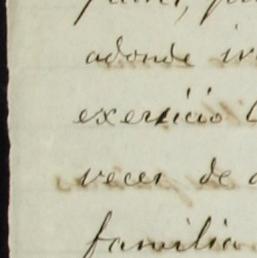 adonde
exercicio
veces de
familia